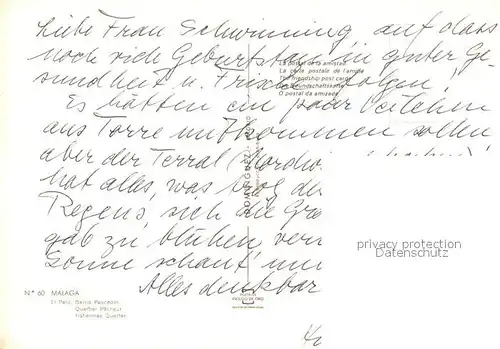 Liebe Frau Schwinning, auf dass
noch viele Geburtstage in guter Ge-
sundheit u. Frische folgen!
Es hätten ein paar Veilchen
aus Torre mitkommen sollen,
aber der Terral (Nordw
hat alles, was trotz de
Regens, sich die
gab zu blühen, ver
Sonne schaut
Alles denkbar
La postal de la amistad
La carte postale de l'amitié
The friendship post card
Die Freundschaftskarte
O postal da amizade
DOMINGUEZ
privacy protection
Datenschutz
N.° 60 MALAGA
El Palo. Barrio Pescador.
Quartier Pêcheur
Fishermen Quarter